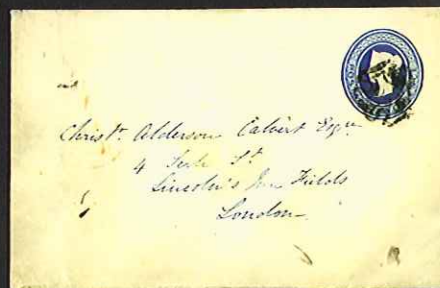 Christr. Alderson Calvert Esqre
4 Serle St
Lincoln's Inn Fields
London